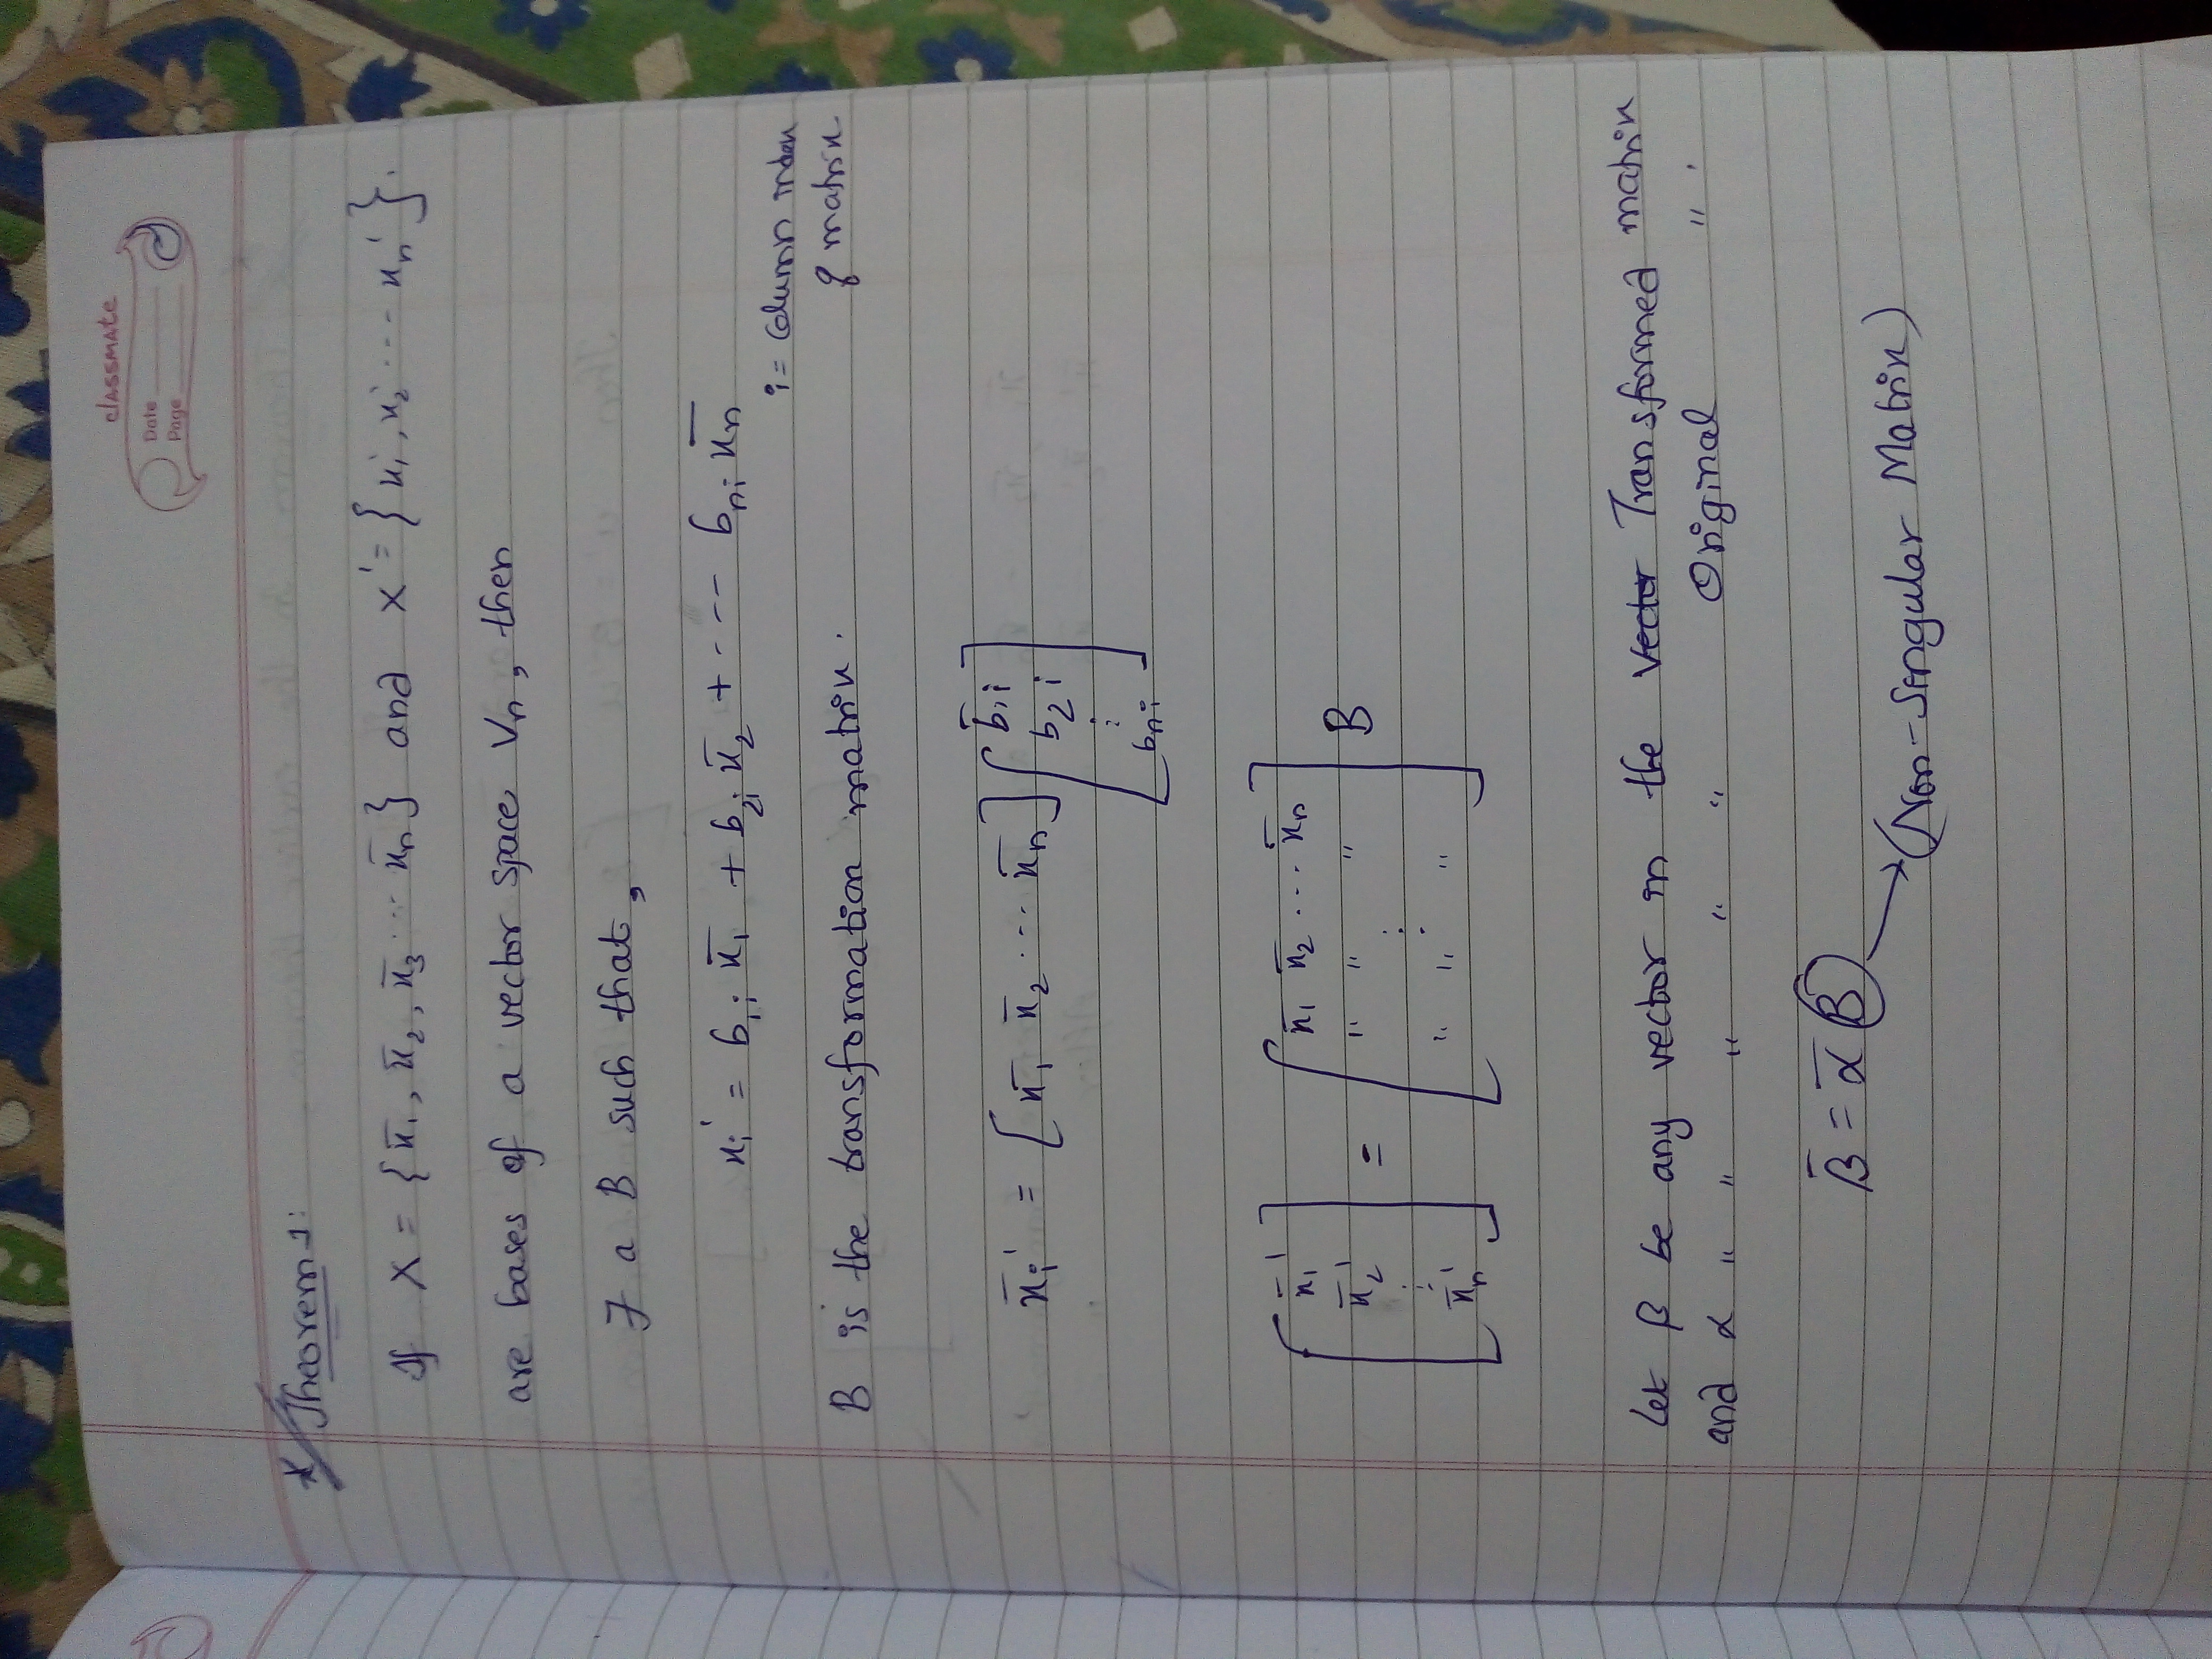 classmate
Date
Page
* Theorem 1:
If X = { x̄₁, x̄₂, x̄₃ ... x̄ₙ } and X' = { x₁', x₂' ... xₙ' }.
are bases of a vector space Vₙ, then
∃ a B such that,
xᵢ' = b₁ᵢ x̄₁ + b₂ᵢ x̄₂ + ... bₙᵢ x̄ₙ
i = column index
of matrix
B is the transformation matrix.
x̄ᵢ' = [ x̄₁ x̄₂ ... x̄ₙ ] [ b₁ᵢ
b₂ᵢ
⋮
bₙᵢ ]
[ x̄₁'
x̄₂'
⋮
x̄ₙ' ] = [ x̄₁ x̄₂ ... x̄ₙ
" " "
⋮
" " " ] B
Let β be any vector in the vector Transformed matrix
and α " " " " " " Original " .
β̄ = ᾱ B → (Non-Singular Matrix)